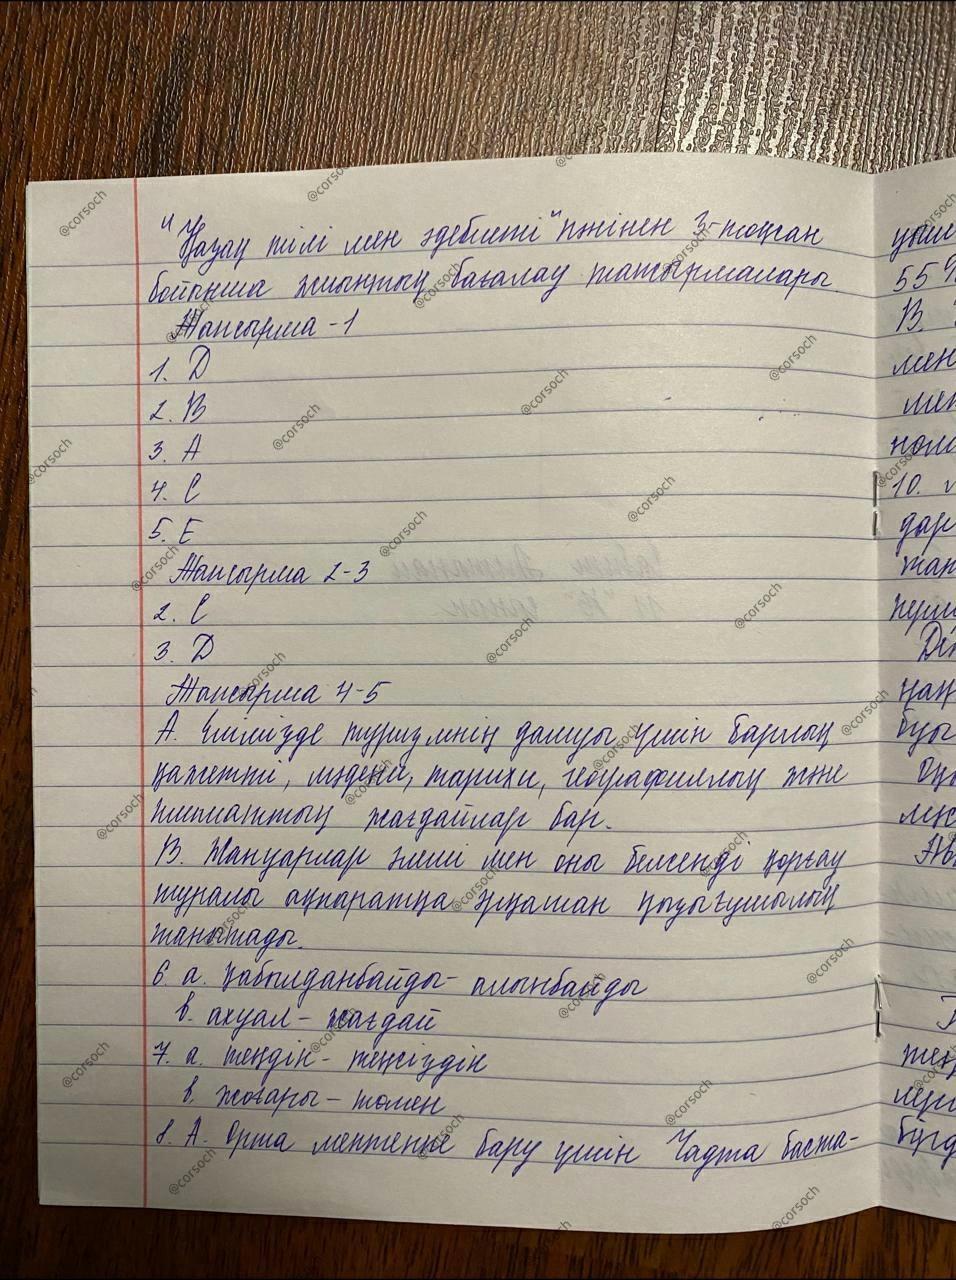 "Қазақ тілі мен әдебиеті" пәнінен 3-тоқсан
бойынша жиынтық бағалау тапсырмалары
Тапсырма -1
1. D
2. B
3. A
4. C
5. E
Тапсырма 2-3
2. C
3. D
Тапсырма 4-5
А. Елімізде туризмнің дамуы үшін барлық
қажетті, мәдени, тарихи, географиялық және
климаттық жағдайлар бар.
В. Жануарлар әлемі мен оны белсенді қорғау
туралы ақпаратқа әрқашан қызығушылық
танытады.
6 а. қабылданбайды- алынбайды
в. ахуал- жағдай
7. а. теңдік- теңсіздік
в. жоғары- төмен
8. А. Орта мектепке бару үшін Чадта баста-
55
В.
10.
@corsoch